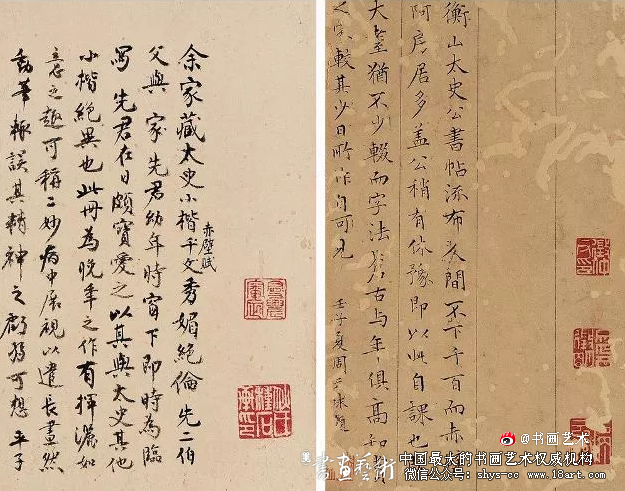 衡山太史公書帖流布人間不下千百而赤
阿房居多蓋公稍有休豫即以此自課也
大耋猶不少輟而字法古与年俱高
之字較其少日所作自可見 壬子夏周天球
余家藏太史小楷千文秀媚絕倫先二伯
赤壁賦
父與 家先君幼年時窗下即時為臨
寫 先君在日頗寶愛之以其與太史其他
小楷絕異也此冊為晚年之作有揮灑如
意之趣可稱二妙病中展視以遣長晝然
動筆輒誤其精神之可想 平子
@书画艺术
書畫藝術
中国最大的书画艺术权威机构
微信公众号: shys-cc www.18art.com